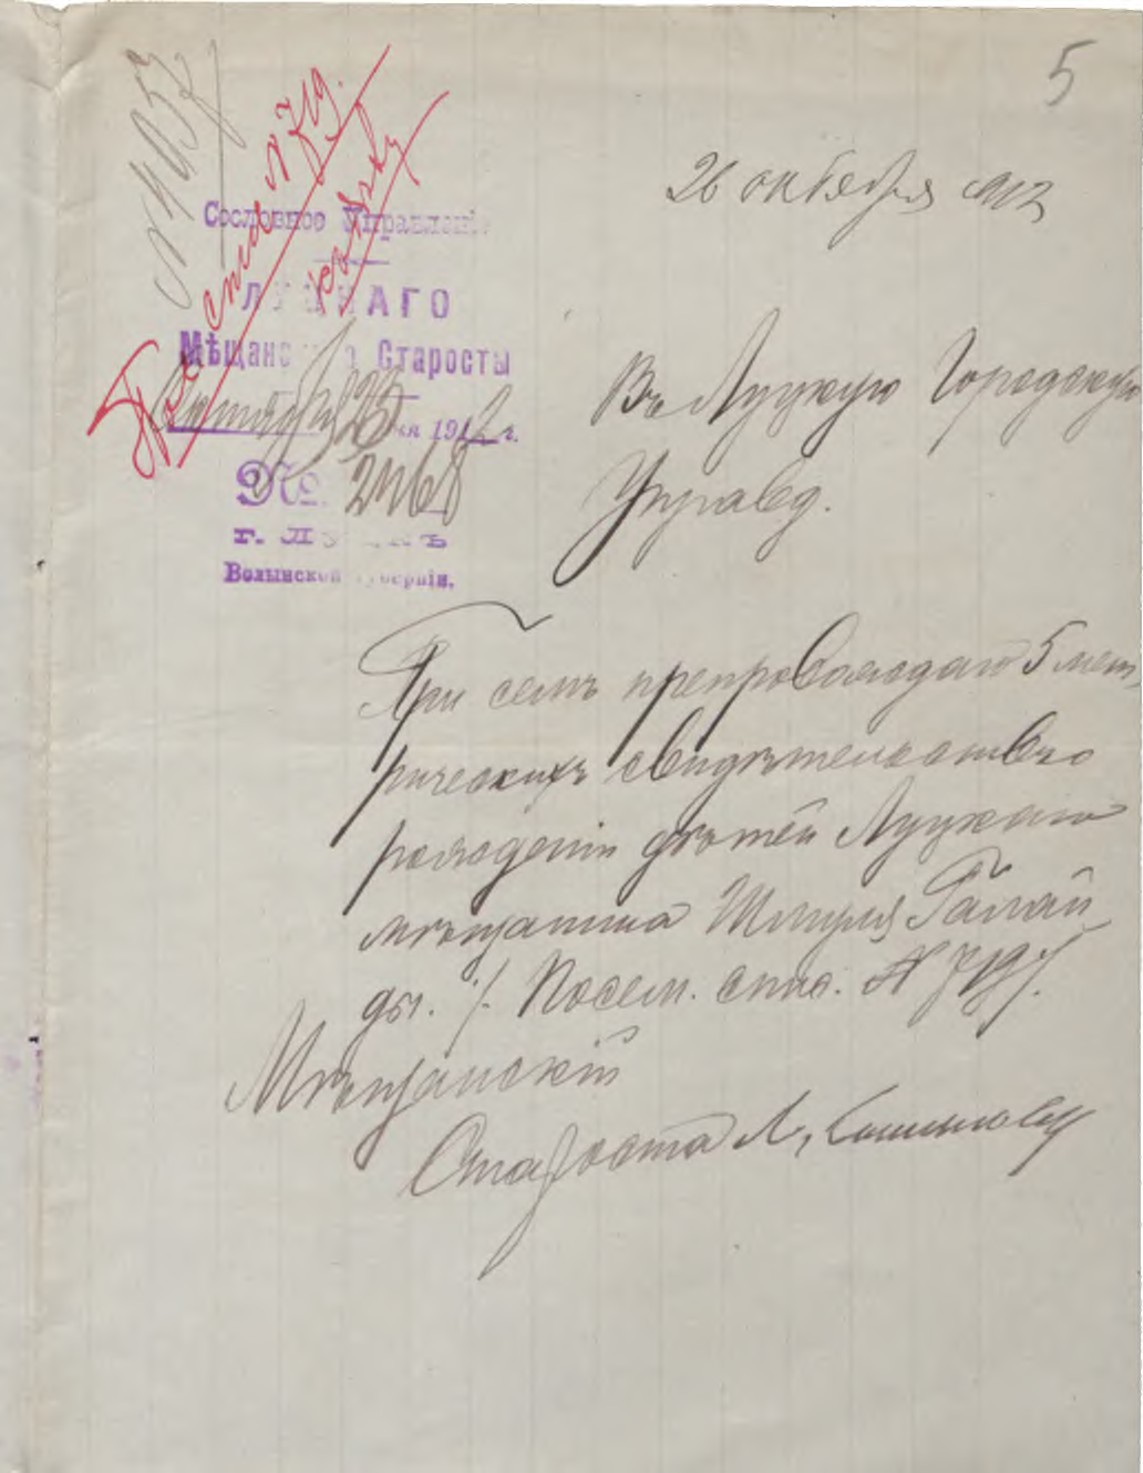 5
№ 4057
26 октября 1912
Сословное Управленіе
ЛУЦКАГО
Мѣщанскаго Старосты
Октября 25 дня 1912 г.
№ 2468
г. Луцкъ
Волынской губерніи.
Въ Луцкую Городскую
Управу.
При семъ препровождаю 5 мет-
рическихъ свидѣтельствъ о
рожденіи дѣтей Луцкаго
мѣщанина Шмуля Галай
ды. /. Посем. спис. №
Мѣщанскій
Староста Л.